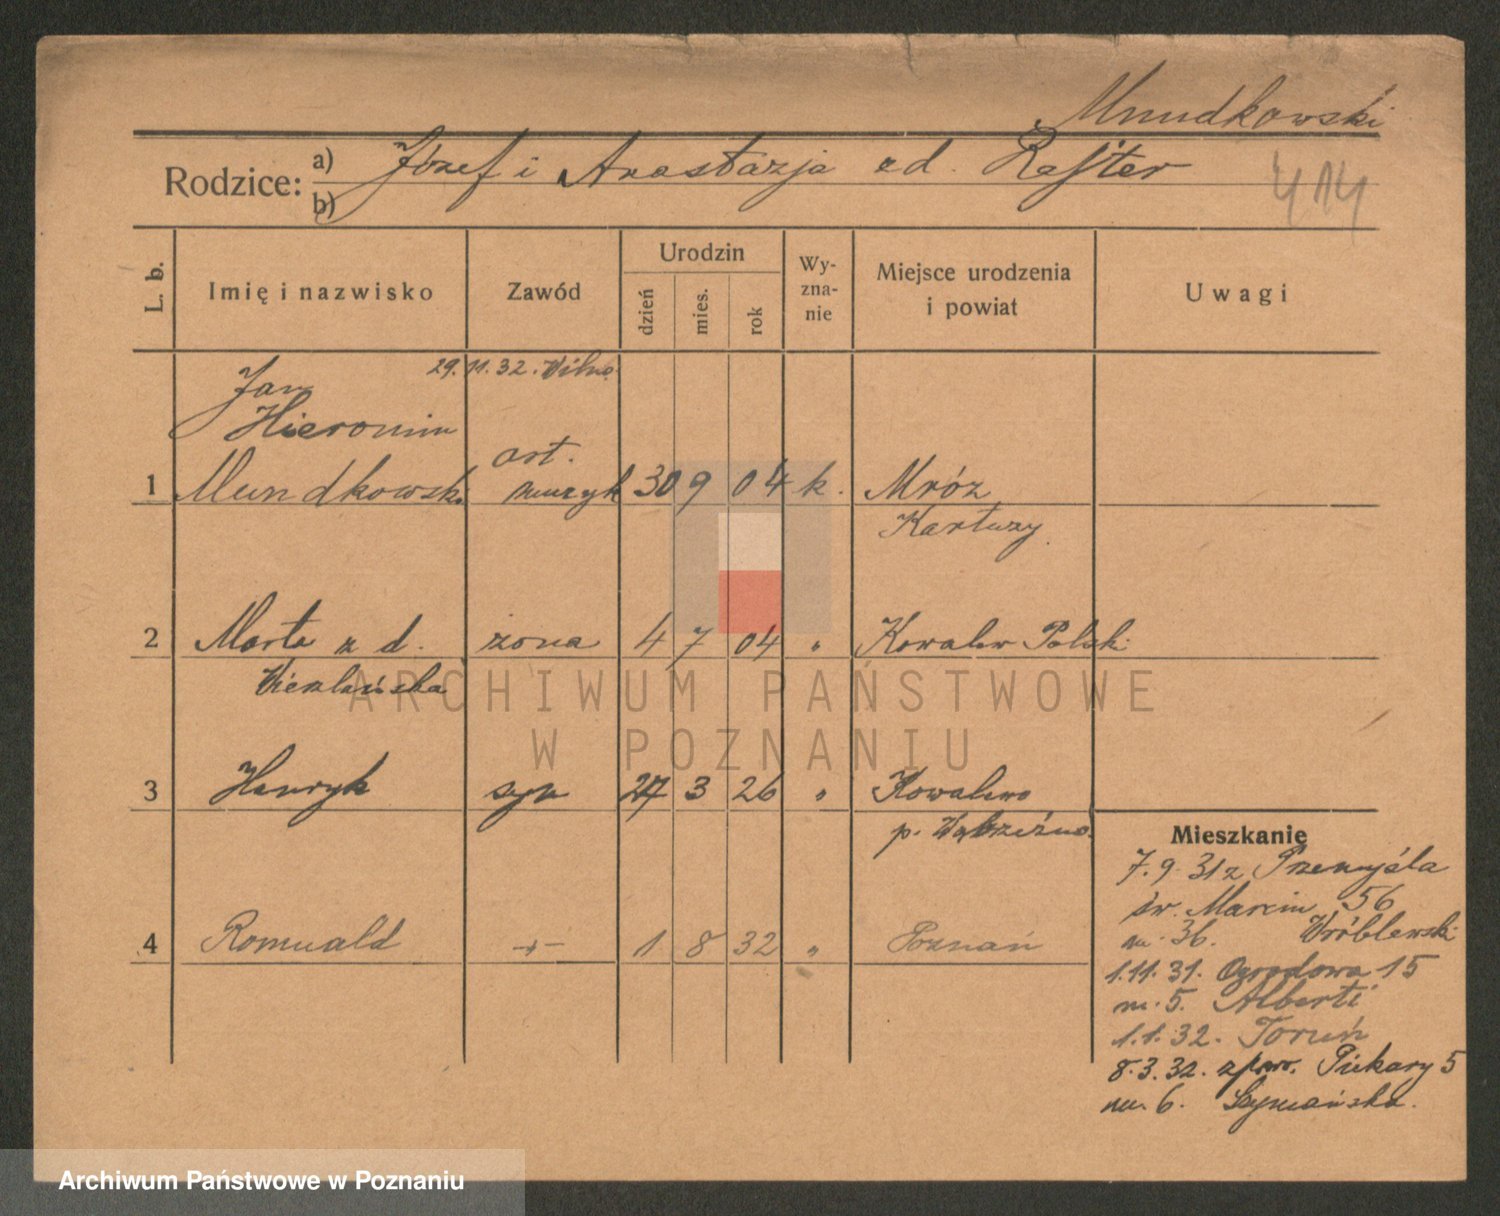 Mundkowski
Rodzice: a) Józef i Anastazja z d. Rajter
b)
414
L. b.
Imię i nazwisko
Zawód
Urodzin
dzień
mies.
rok
Wy-
zna-
nie
Miejsce urodzenia
i powiat
Uwagi
29.11.32. Wilno
Jan
Hieronim
art.
1 Mundkowski muzyk 30 9 04 k. Mróz
Kartuzy.
2 Marta z d. żona 4 7 04 " Kowalew Polski
3 Henryk syn 27 3 26 " Kowalewo
p. Wąbrzeźno.
4 Romuald -"- 1 8 32 " Poznań
Mieszkanie
7.9.31 z Przemyśla
św. Marcin 56
m. 36. Wróblewski
1.11.31. Ogrodowa 15
m. 5. Alberti
1.1.32. Toruń
8.3.32. z pow. Piekary 5
m. 6. Szymańska.
ARCHIWUM PAŃSTWOWE
W POZNANIU
Archiwum Państwowe w Poznaniu